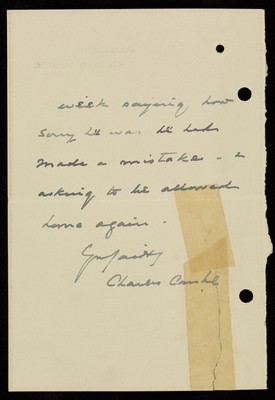 week saying how
sorry he was he had
made a mistake - &
asking to be allowed
home again -
Yrs faithly
Charles